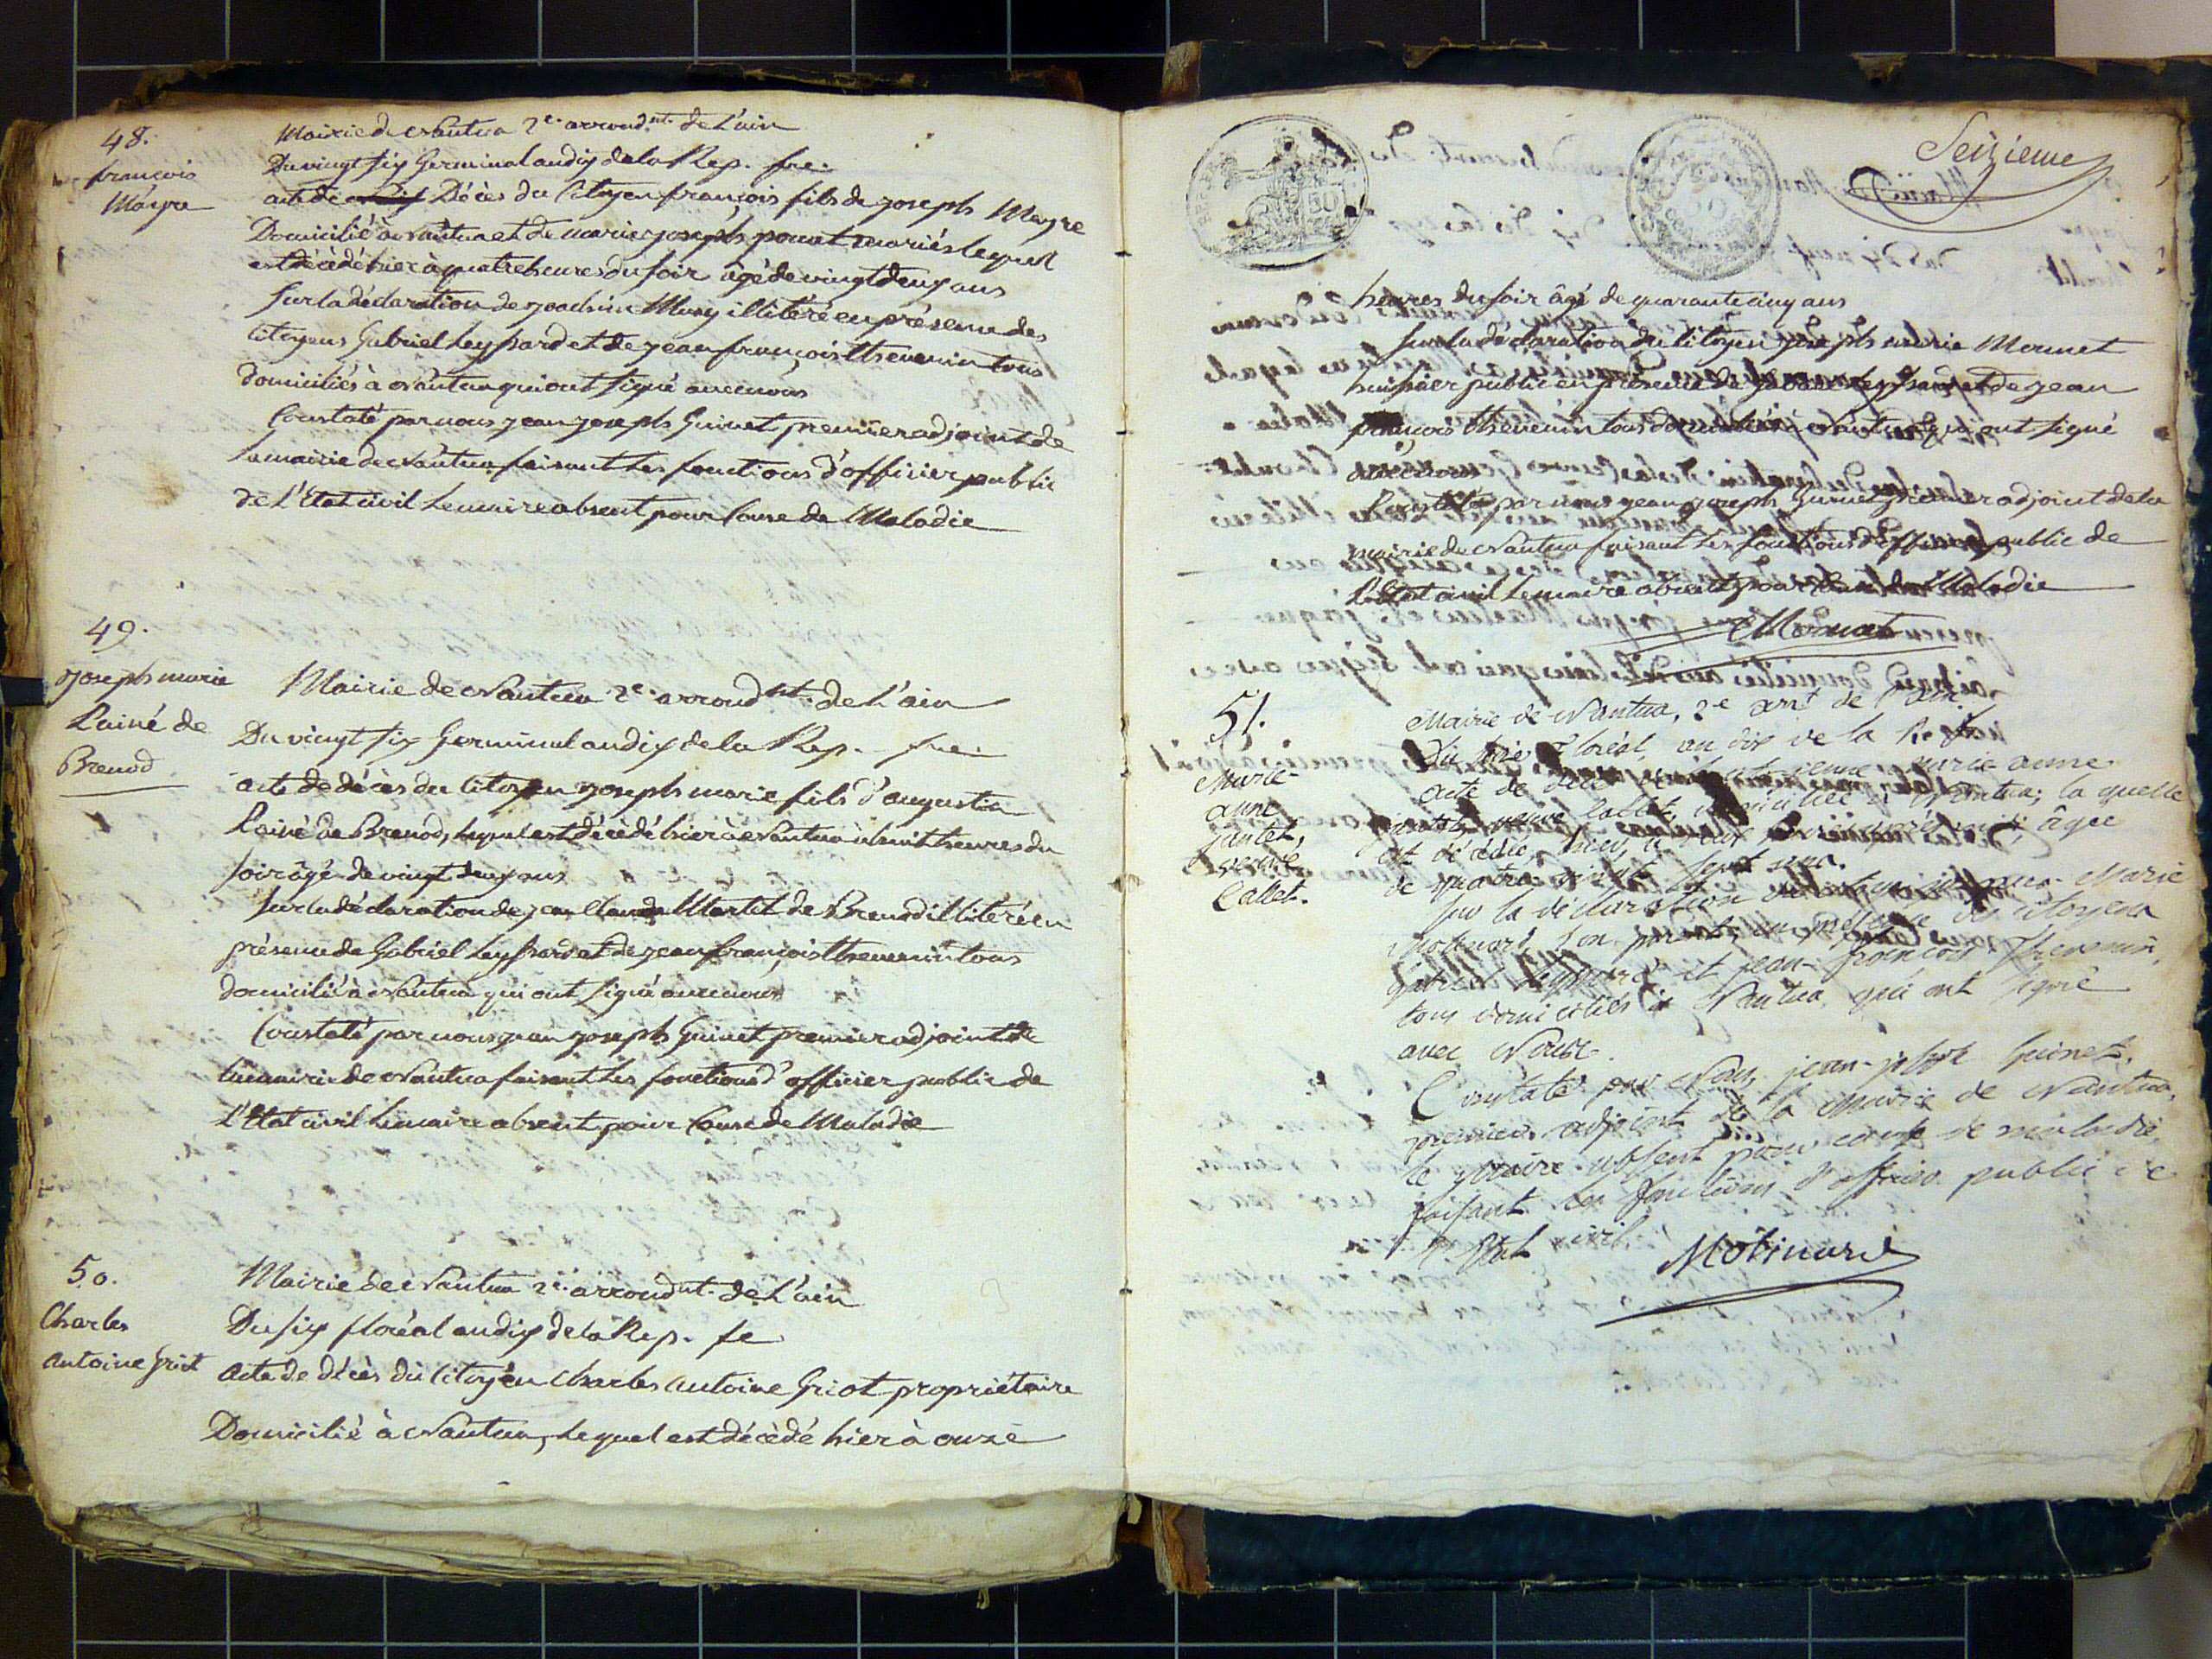 48.
françois
Mayre
Mairie de Nantua 2e. arrond.nt. de L'ain
Du vingt six Germinal an dix de la Rep. fre.
acte de Décès du Citoyen françois fils de joseph Mayre
Domicilié à Nantua et de marie joseph ponet mariés lequel
est décédé hier à quatre heures du soir âgé de vingt deux ans
Sur la déclaration de joachim Musy illitéré en présence des
Citoyens Gabriel Leyssard et de jean françois thevenin tous
domiciliés à Nantua qui ont signé avec nous
Constaté par nous jean joseph Guinet premier adjoint de
la mairie de Nantua faisant les fonctions d'officier public
de L'Etat civil Le maire absent pour Cause de Maladie
49.
joseph marie
Lainé de
Brenod
Mairie de Nantua 2e. arrond nt. de L'ain
Du vingt six Germinal an dix de la Rep. fre.
acte de décès du Citoyen joseph marie fils d'augustin
Lainé de Brenod, lequel est décédé hier à Nantua à huit heures du
soir âgé de vingt deux ans
Sur la déclaration de jean Claude Martel de Brenod illitéré en
présence de Gabriel Leyssard et de jean françois thevenin tous
domicilié à Nantua qui ont signé avec nous
Constaté par nous jean joseph Guinet premier adjoint de
la mairie de Nantua faisant les fonctions d'officier public de
L'Etat civil Le maire absent pour Cause de Maladie
50.
Charles
Antoine Griot
Mairie de Nantua 2e. arrond nt. de L'ain
Du six floréal an dix de la Rep. fe
Acte de décès du Citoyen Charles Antoine Griot propriétaire
Domicilié à Nantua, Lequel est décédé hier à onze
Seizieme
heures du soir âgé de quarante cinq ans
Sur la déclaration du Citoyen joseph marie Mornet
huissier public en présence de Gabriel Leyssard et de jean
françois thevenin tous domiciliés à Nantua qui ont signé
avec nous
Constaté par nous jean joseph Guinet premier adjoint de la
mairie de Nantua faisant les fonctions d'officier public de
L'Etat civil Le maire absent pour Cause de Maladie
Mornet
51.
Marie-
anne
jantet,
veuve
Callet.
Mairie de Nantua, 2e arrt de l'ain
Du Floréal, an dix de la Rep.
Acte de décès de marie anne
jantet, veuve Callet, domiciliée à Nantua, la quelle
est décédée, hier, à âgée
de quatre vingt sept ans.
Sur la déclaration du Citoyen Marie
Molinard, son parent, en présence des citoyens
Gabriel Leyssard et jean-françois Thevenin,
tous domiciliés à Nantua, qui ont signé
avec Nous.
Constaté par Nous, jean-joseph Guinet,
premier adjoint de la Mairie de Nantua,
le Maire absent pour cause de maladie,
faisant les fonctions d'officier public de
l'Etat civil.
Molinard